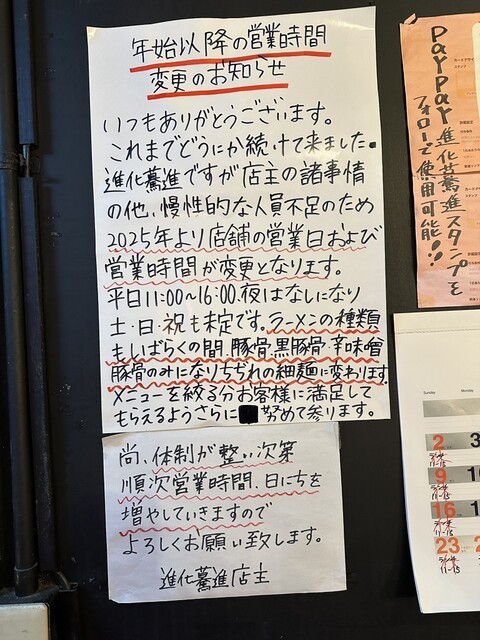 年始以降の営業時間
変更のお知らせ
いつもありがとうございます。
これまでどうにか続けて来ました
進化驀進ですが店主の諸事情
の他、慢性的な人員不足のため
2025年より店舗の営業日および
営業時間が変更となります。
平日11:00~16:00.夜はなしになり
土・日・祝も未定です。ラーメンの種類
もしばらくの間、豚骨、黒豚骨、辛味噌
豚骨のみになりちぢれの細麺に変わります.
メニューを絞る分お客様に満足して
もらえるようさらに努めて参ります。
尚、体制が整い次第
順次営業時間、日にちを
増やしていきますので
よろしくお願い致します。
進化驀進店主
PayPay進化驀進スタンプを
フォローで使用可能!!
Sunday Monday
2 3
11-15
9
11-15
16
11-15
23
11-15